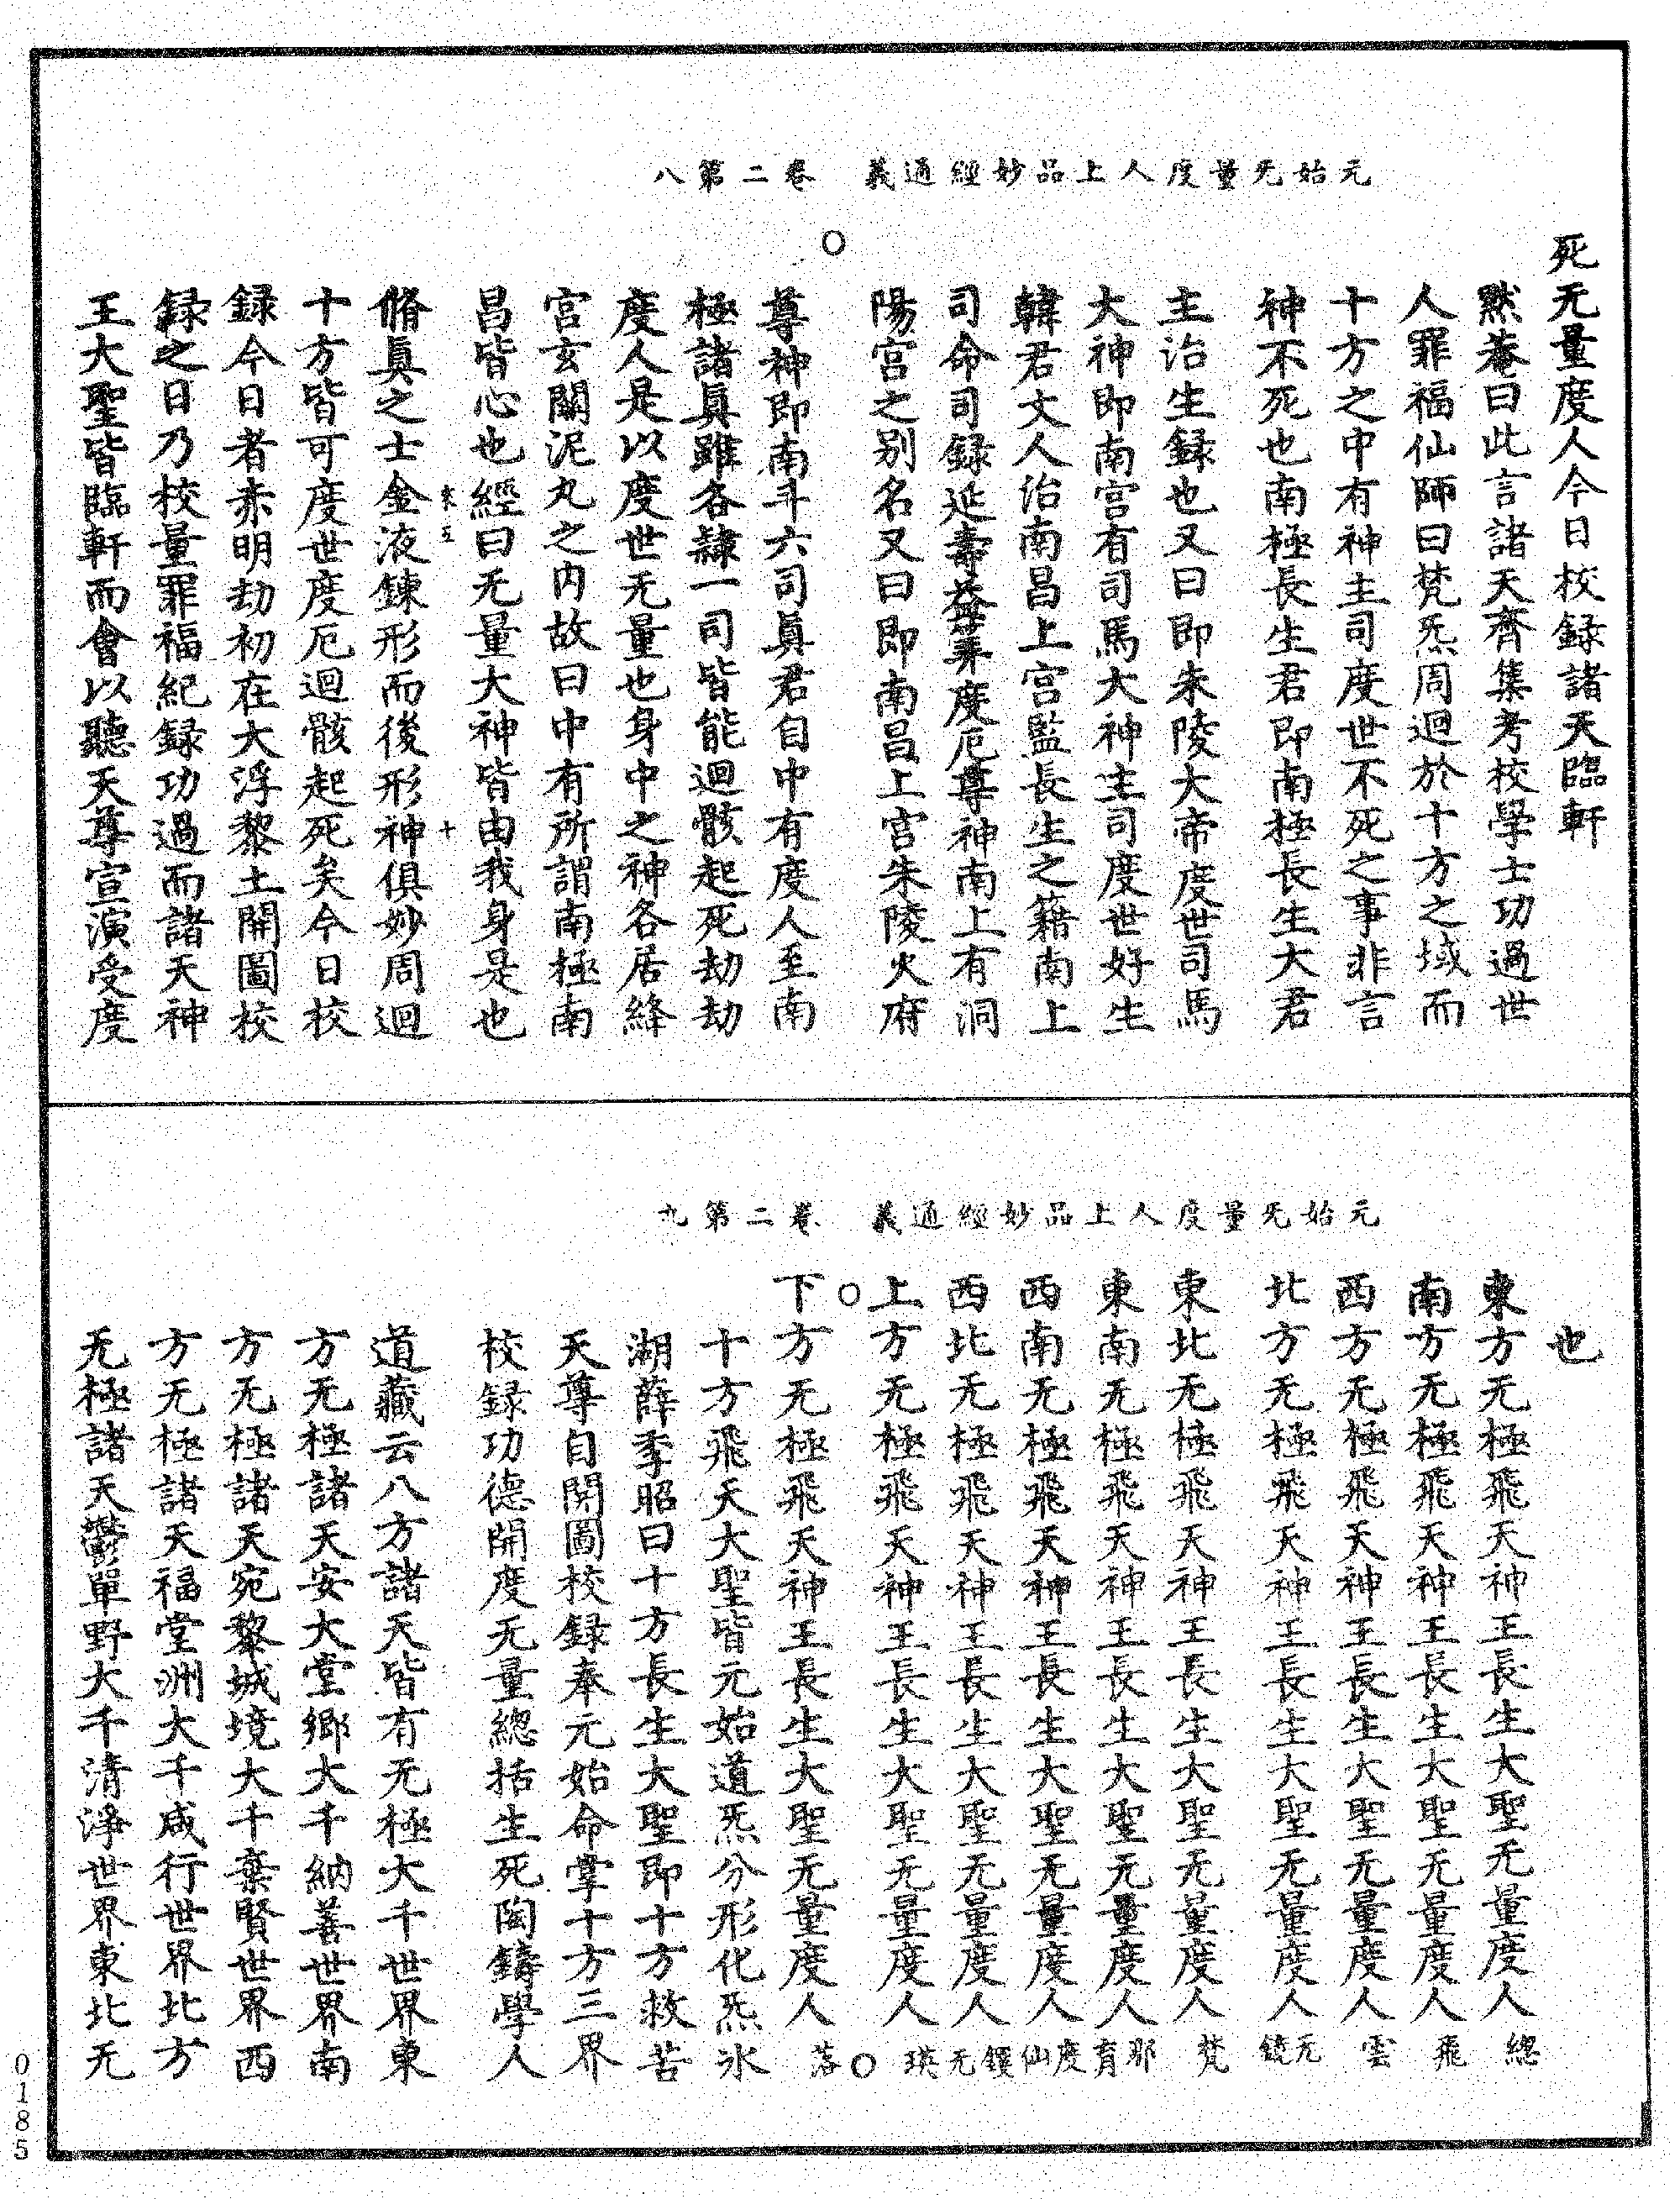 元始无量度人上品妙經通義　卷二第八
死无量度人今日校録諸天臨軒
黙菴曰此言諸天齊集考校學士功過世
人罪福仙師曰梵炁周迴於十方之域而
十方之中有神主司度世不死之事非言
神不死也南極長生君即南極長生大君
主治生録也又曰即朱陵大帝度世司馬
大神即南宫有司馬大神主司度世好生
韓君丈人治南昌上宫監長生之籍南上
司命司録延壽益筭度厄尊神南上有洞
陽宫之别名又曰即南昌上宫朱陵火府
○
尊神即南斗六司眞君自中有度人至南
極諸眞雖各隷一司皆能迴骸起死劫劫
度人是以度世无量也身中之神各居絳
宫玄關泥丸之内故曰中有所謂南極南
昌皆心也經曰无量大神皆由我身是也
十
脩眞之士金液鍊形而後形神俱妙周迴
十方皆可度世度厄迴骸起死矣今日校
録今日者赤明劫初在大浮黎土開圖校
録之日乃校量罪福紀録功過而諸天神
王大聖皆臨軒而會以聽天尊宣演受度
元始无量度人上品妙經通義　卷二第九
也
東方无極飛天神王長生大聖无量度人總
南方无極飛天神王長生大聖无量度人飛
西方无極飛天神王長生大聖无量度人雲
北方无極飛天神王長生大聖无量度人无鏡
東北无極飛天神王長生大聖无量度人梵
東南无極飛天神王長生大聖无量度人那育
西南无極飛天神王長生大聖无量度人度仙
西北无極飛天神王長生大聖无量度人
上方无極飛天神王長生大聖无量度人
○ ○
下方无極飛天神王長生大聖无量度人落
十方飛天大聖皆元始道炁分形化炁氷
湖薛季昭曰十方長生大聖即十方救苦
天尊自開圖校録奉元始命掌十方三界
校録功德開度无量總括生死陶鑄學人
道藏云八方諸天皆有无極大千世界東
方无極諸天安大堂鄉大千納善世界南
方无極諸天宛黎城境大千棄賢世界西
方无極諸天福堂洲大千咸行世界北方
无極諸天鬱單野大千清淨世界東北无
0185